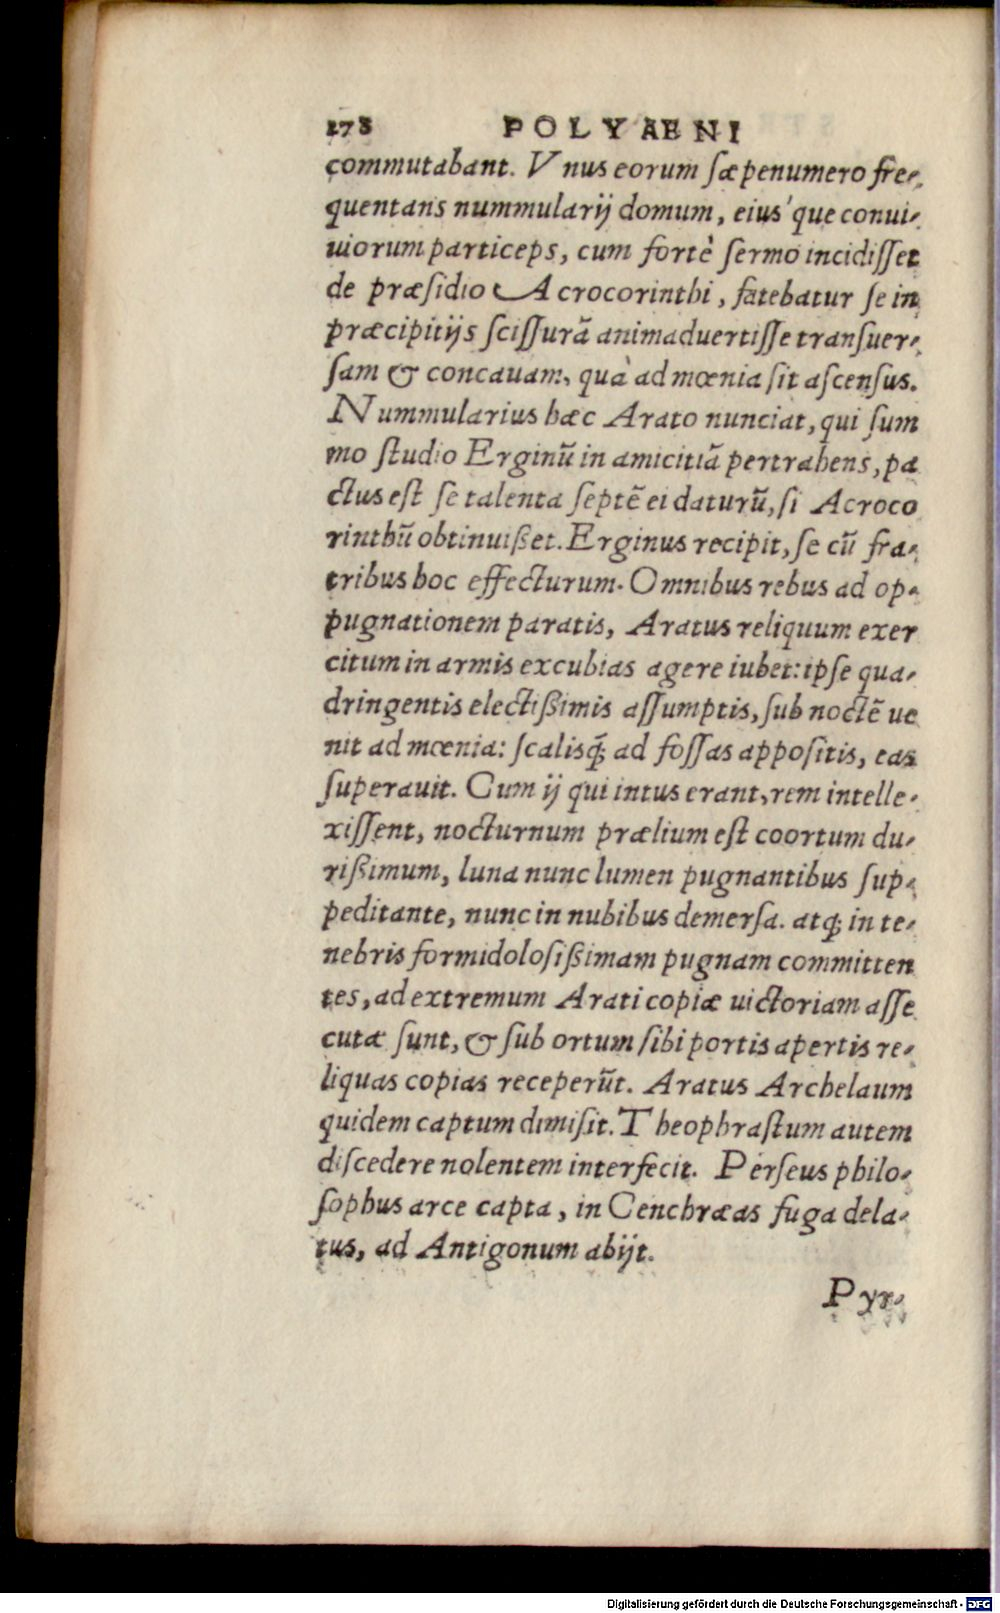 178 POLYAENI
commutabant. Vnus eorum sæpenumero fre-
quentans nummularij domum, eius'que conui-
uiorum particeps, cum fortè sermo incidisset
de præsidio Acrocorinthi, fatebatur se in
præcipitijs scissurā animaduertisse transuer-
sam & concauam, quà ad mœnia sit ascensus.
Nummularius hæc Arato nunciat, qui sum
mo studio Erginū in amicitiā pertrahens, pa
ctus est se talenta septē ei daturū, si Acroco
rinthū obtinuißet. Erginus recipit, se cū fra-
tribus hoc effecturum. Omnibus rebus ad op-
pugnationem paratis, Aratus reliquum exer
citum in armis excubias agere iubet: ipse qua-
dringentis electißimis assumptis, sub noctē ue
nit ad mœnia: scalisq́; ad fossas appositis, eas
superauit. Cum ij qui intus erant, rem intelle-
xissent, nocturnum prælium est coortum du-
rißimum, luna nunc lumen pugnantibus sup-
peditante, nunc in nubibus demersa. atq; in te-
nebris formidolosißimam pugnam committen
tes, ad extremum Arati copiæ uictoriam asse
cutæ sunt, & sub ortum sibi portis apertis re-
liquas copias receperūt. Aratus Archelaum
quidem captum dimisit. Theophrastum autem
discedere nolentem interfecit. Perseus philo-
sophus arce capta, in Cenchræas fuga dela-
tus, ad Antigonum abijt.
Pyr-
Digitalisierung gefördert durch die Deutsche Forschungsgemeinschaft - DFG